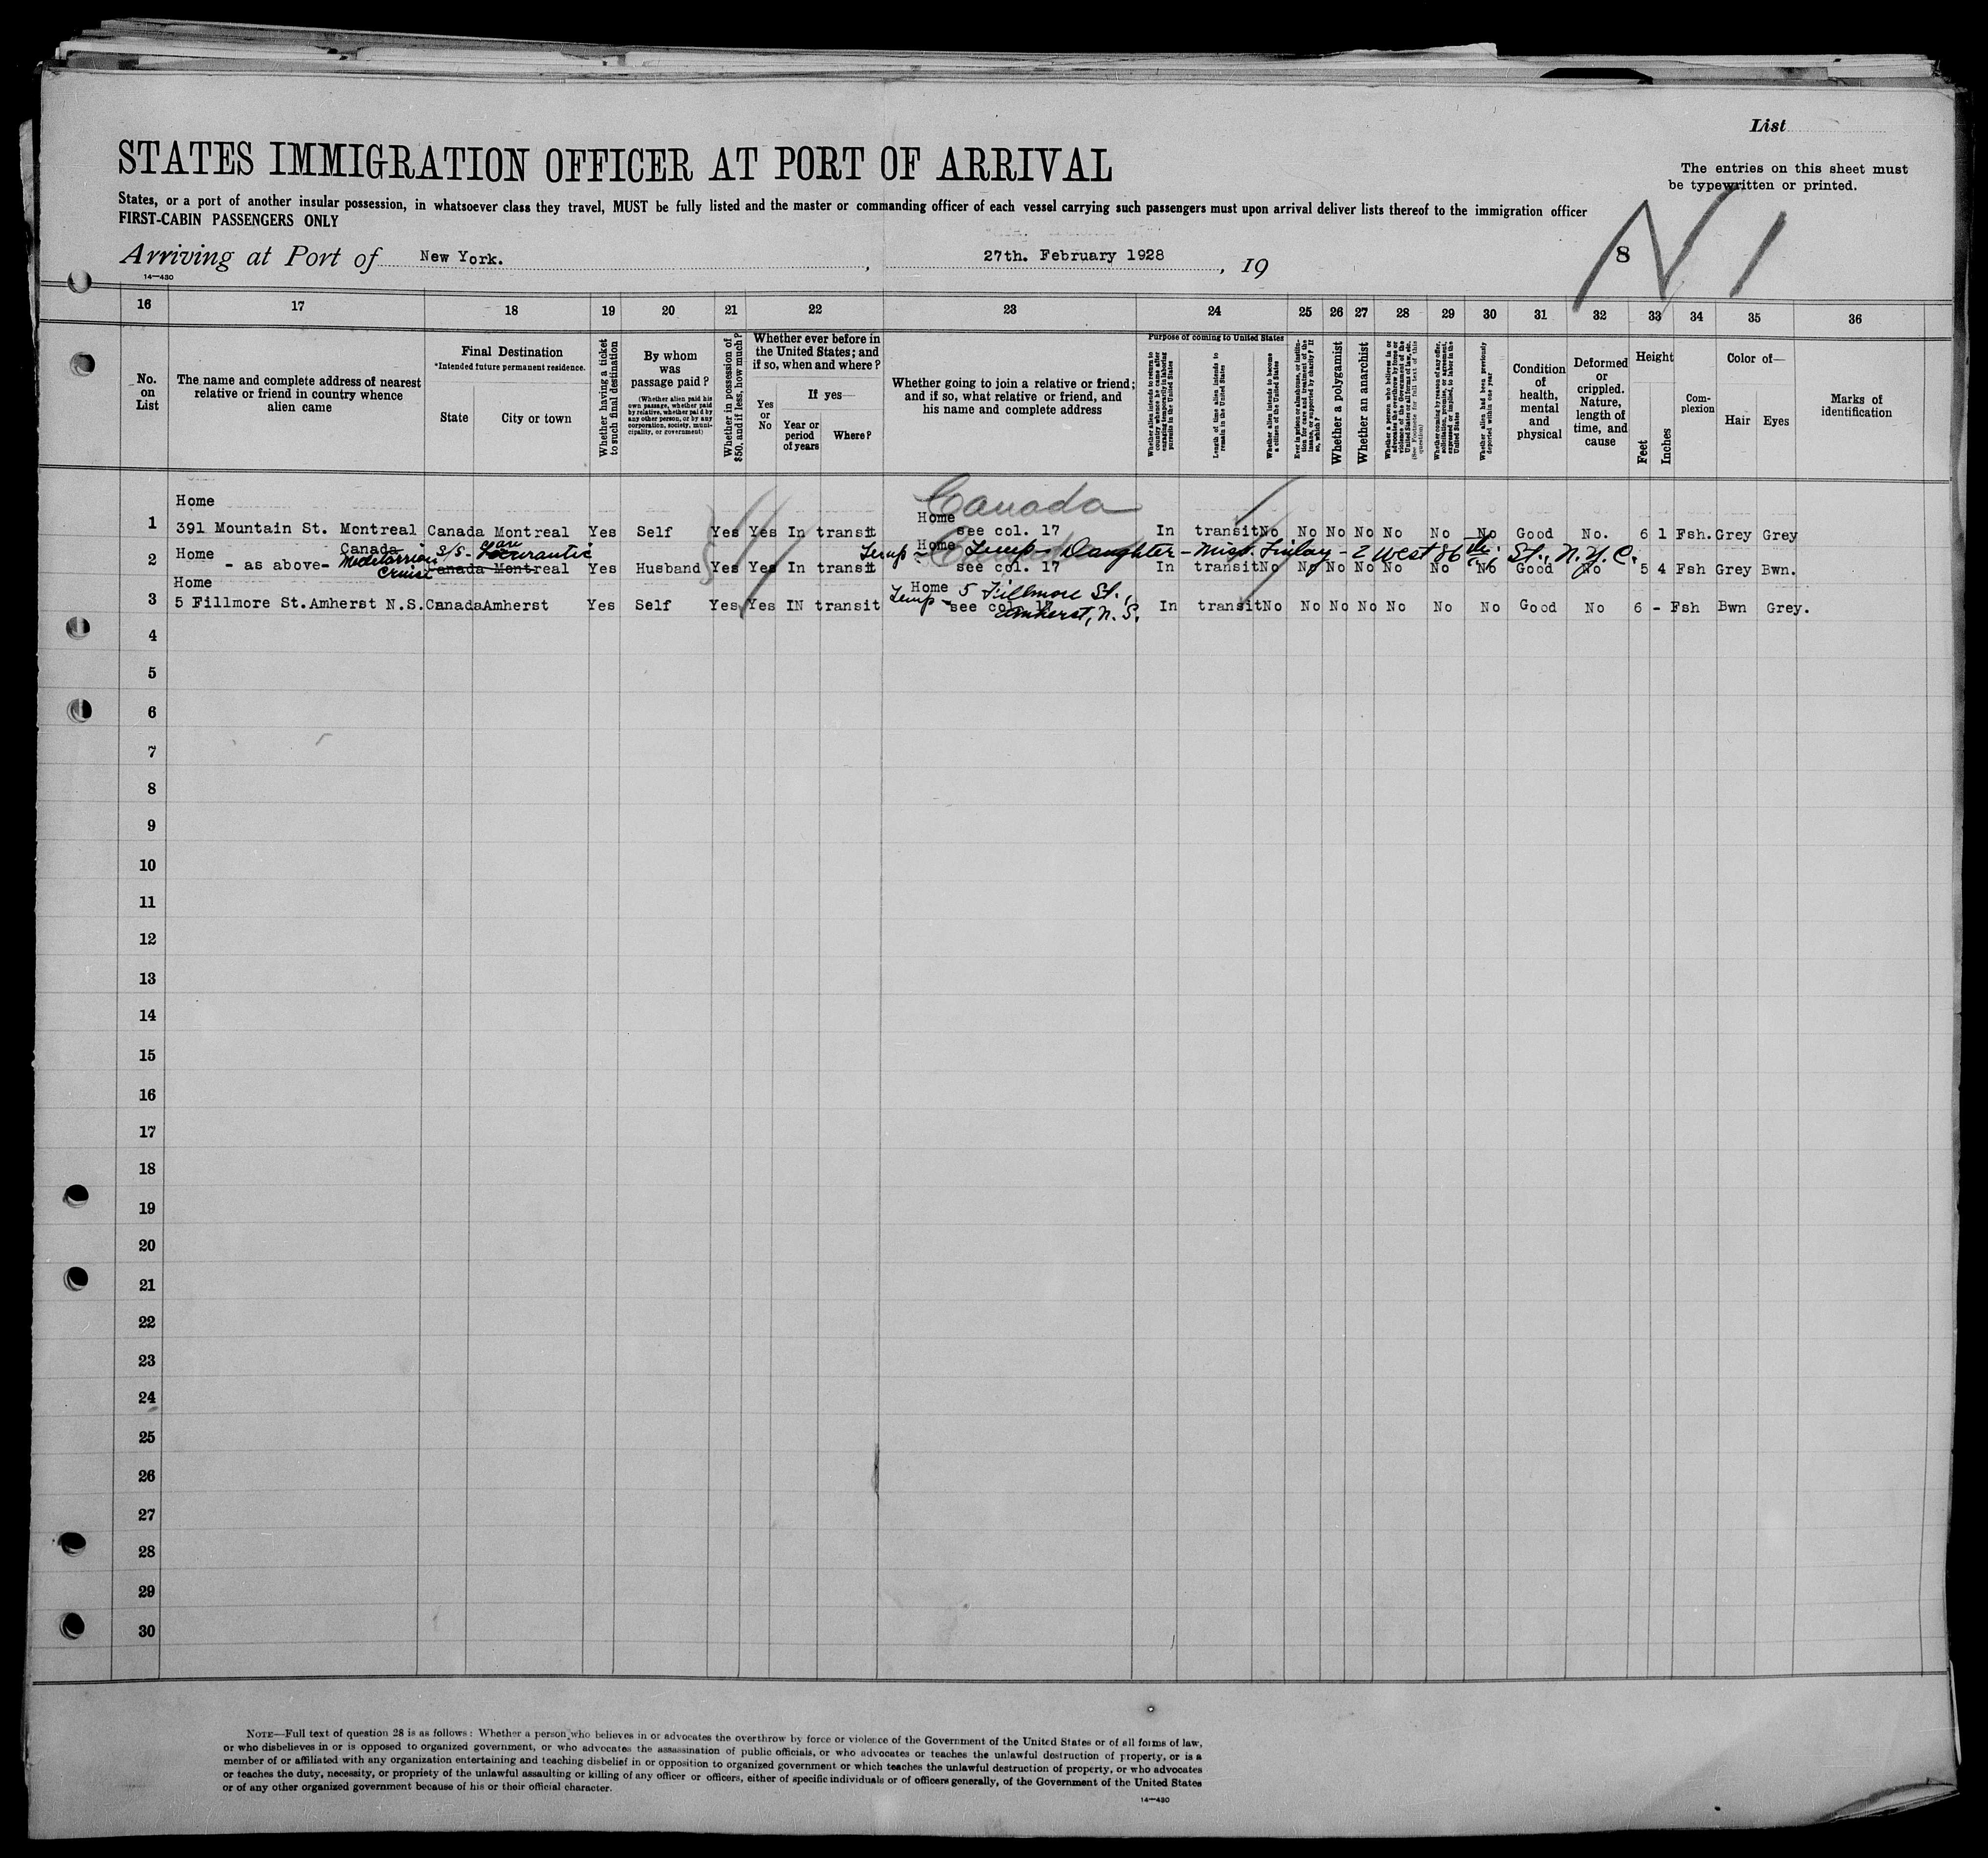 List
STATES IMMIGRATION OFFICER AT PORT OF ARRIVAL
The entries on this sheet must
be typewritten or printed.
States, or a port of another insular possession, in whatsoever class they travel, MUST be fully listed and the master or commanding officer of each vessel carrying such passengers must upon arrival deliver lists thereof to the immigration officer
FIRST-CABIN PASSENGERS ONLY
Arriving at Port of New York. , 27th. February 1928 , 19
8
14—430
16 17 18 19 20 21 22 23 24 25 26 27 28 29 30 31 32 33 34 35 36
No. on List
The name and complete address of nearest relative or friend in country whence alien came
Final Destination
*Intended future permanent residence.
State
City or town
Whether having a ticket to such final destination
By whom was passage paid?
(Whether alien paid his own passage, whether paid by relative, whether paid by any other person, or by any corporation, society, municipality, or government)
Whether in possession of $50, and if less, how much?
Whether ever before in the United States; and if so, when and where?
Yes or No
If yes—
Year or period of years
Where?
Whether going to join a relative or friend; and if so, what relative or friend, and his name and complete address
Purpose of coming to United States
Whether alien intends to return to country whence he came after engaging temporarily in laboring pursuits in the United States
Length of time alien intends to remain in the United States
Whether alien intends to become a citizen of the United States
Ever in prison or almshouse, or institution for care and treatment of the insane, or supported by charity? If so, which?
Whether a polygamist
Whether an anarchist
Whether a person who believes in or advocates the overthrow by force or violence of the Government of the United States or all forms of law, etc.
(See Footnote for full text of this question)
Whether coming by reason of any offer, solicitation, promise, or agreement, expressed or implied, to labor in the United States
Whether alien had been previously deported within one year
Condition of health, mental and physical
Deformed or crippled. Nature, length of time, and cause
Height
Feet
Inches
Complexion
Color of—
Hair
Eyes
Marks of identification
Home Canada
Home
1 391 Mountain St. Montreal Canada Montreal Yes Self Yes Yes In transit see col. 17 In transit No No No No No No No Good No. 6 1 Fsh. Grey Grey
Canada S/S-
Home Mediterrian Cruise Temp - Home Temp - Daughter - Miss. Finlay - 2 West 86 th. St., N.Y.C.
2 - as above- Canada Montreal Yes Husband Yes Yes In transit see col. 17 In transit No No No No No No No Good No 5 4 Fsh Grey Bwn.
Home Home 5 Fillmore St.,
3 5 Fillmore St.Amherst N.S. Canada Amherst Yes Self Yes Yes IN transit Temp - see col. 17 Amherst, N.S. In transit No No No No No No No Good No 6 - Fsh Bwn Grey.
4
5
6
7
8
9
10
11
12
13
14
15
16
17
18
19
20
21
22
23
24
25
26
27
28
29
30
NOTE—Full text of question 28 is as follows: Whether a person who believes in or advocates the overthrow by force or violence of the Government of the United States or of all forms of law,
or who disbelieves in or is opposed to organized government, or who advocates the assassination of public officials, or who advocates or teaches the unlawful destruction of property, or is a
member of or affiliated with any organization entertaining and teaching disbelief in or opposition to organized government or which teaches the unlawful destruction of property, or who advocates
or teaches the duty, necessity, or propriety of the unlawful assaulting or killing of any officer or officers, either of specific individuals or of officers generally, of the Government of the United States
or of any other organized government because of his or their official character.
14—430